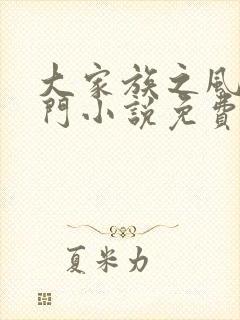 大家族之風
門小說免費
夏米力